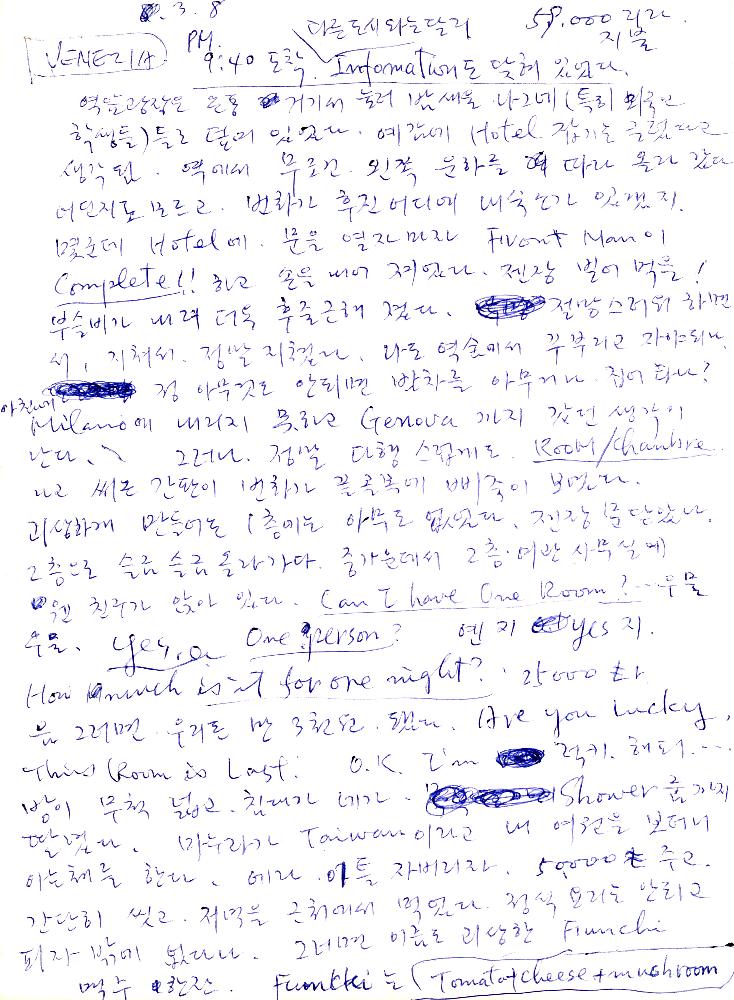 3. 8
다른 도시와는 달리 58.000 리라 지불
VENEZIA PM. 9:40 도착. Infomation도 닫혀 있었다.
역앞 광장은 온통 거기서 눌러 밤새울 나그네 (특히 외국인
학생들)들로 덮여 있었다. 예감에 Hotel 잡기는 글렀다고
생각됨. 역에서 무조건 왼쪽 문화를 따라 올라 갔다
어딘지도 모르고. 번화가 후진 어디에 내 숙소가 있겠지.
몇군데 Hotel에. 문을 열자마자 Front Man이
Complete!! 하고 손을 내어 저었다. 젠장 빌어먹을!
부슬비가 내려 더욱 후줄근해 졌다. 절망스러워 하면
서, 지쳐서. 정말 지쳤다. 나도 역숲에서 꾸부리고 자야되나
정 아무것도 안되면 밤차를 아무거나 집어 타나?
아침에 Milano에 내리지 못하고 Genova 까지 갔던 생각이
난다. 그러나. 정말 다행 스럽게도. Room/Chambre
라고 써논 간판이 번화가 끝골목에 삐죽이 보였다.
괴상하게 만들어논 1층에는 아무도 없었다. 젠장 문 닫았나.
2층으로 슬금 슬금 올라가다. 중간에서 2층 여관 사무실에
웬 친구가 앉아 있다. Can I have One Room? ... 우물
우물. Yes, One person? 옌지 yes지.
How much is it for one night? 25000
음 그러면 우리돈 만 3천원. 됐다. Are you lucky,
This Room is Last. O.K. I'm 럭키. 해피....
방이 무척 넓고. 침대가 네개. Shower 룸까지
딸렸다. 마누라가 Taiwan이라고 내 여권을 보더니
아는체를 한다. 에라 이틀 자버리자. 50,000 주고.
간단히 씻고. 저녁을 근처에서 먹었다. 정식 요리도 안되고
피자 밖에 없단다. 그러면 이름도 괴상한 Funchi
맥주 한잔. Funkki는 (Tomato+cheese+mushroom